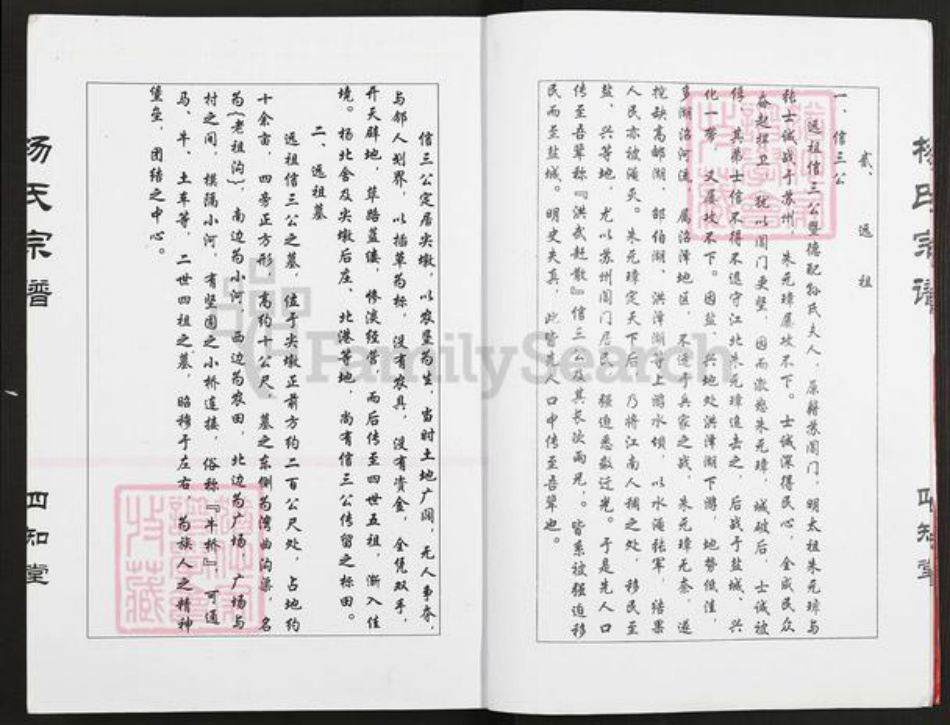 杨氏宗谱
四知堂
贰、远祖
一、信三公
远祖信三公暨德配孙氏夫人，原籍苏阊门，明太祖朱元璋与
张士诚战于苏州，朱元璋屡攻不下。士诚深得民心，全城民众
奋起捍卫，犹以阊门更坚，因而激怒朱元璋，城破后，士诚被
俘，其弟士信不得不退守江北朱元璋追击之，后战于盐城、兴
化一带，又屡攻不下。因盐、兴地处洪泽湖下游，地势低洼，
多湖沼河流，属沼泽地区，不适于兵家之战，朱元璋无奈，遂
挖缺高邮湖、邵伯湖、洪泽湖之上游水坝，以水淹张军，结果
人民亦被淹灭。朱元璋定天下后，乃将江南人稠之处，移民至
盐、兴等地，尤以苏州阊门居民，强迫悉数迁光。于是先人口
传至吾辈称『洪武赶散』信三公及其长次两兄，皆系被强迫移
民而至盐城。明史失真，此皆先人口中传至吾辈也。
信三公定居尖墩，以农垦为生，当时土地广阔，无人争夺，
与邻人划界，以插草为标，没有农具，没有资金，全凭双手，
开天辟地，筚路蓝缕，惨淡经营，而后传至四世五祖，渐入佳
境。杨北舍及尖墩后庄、北港等地，尚有信三公传留之标田。
二、远祖墓
远祖信三公之墓，位于尖墩正前方约二百公尺处，占地约
十余亩，四旁正方形，高约十公尺，墓之东侧为湾曲沟渠，名
为（老祖沟），南边为小河，西边为农田，北边为广场，广场与
村之间，横隔小河，有坚固之小桥连接，俗称『牛桥』，可通
马、牛、土车等，二世四祖之墓，昭穆于左右，为族人之精神
堡垒，团结之中心。
杨氏宗谱
四知堂
FamilySearch